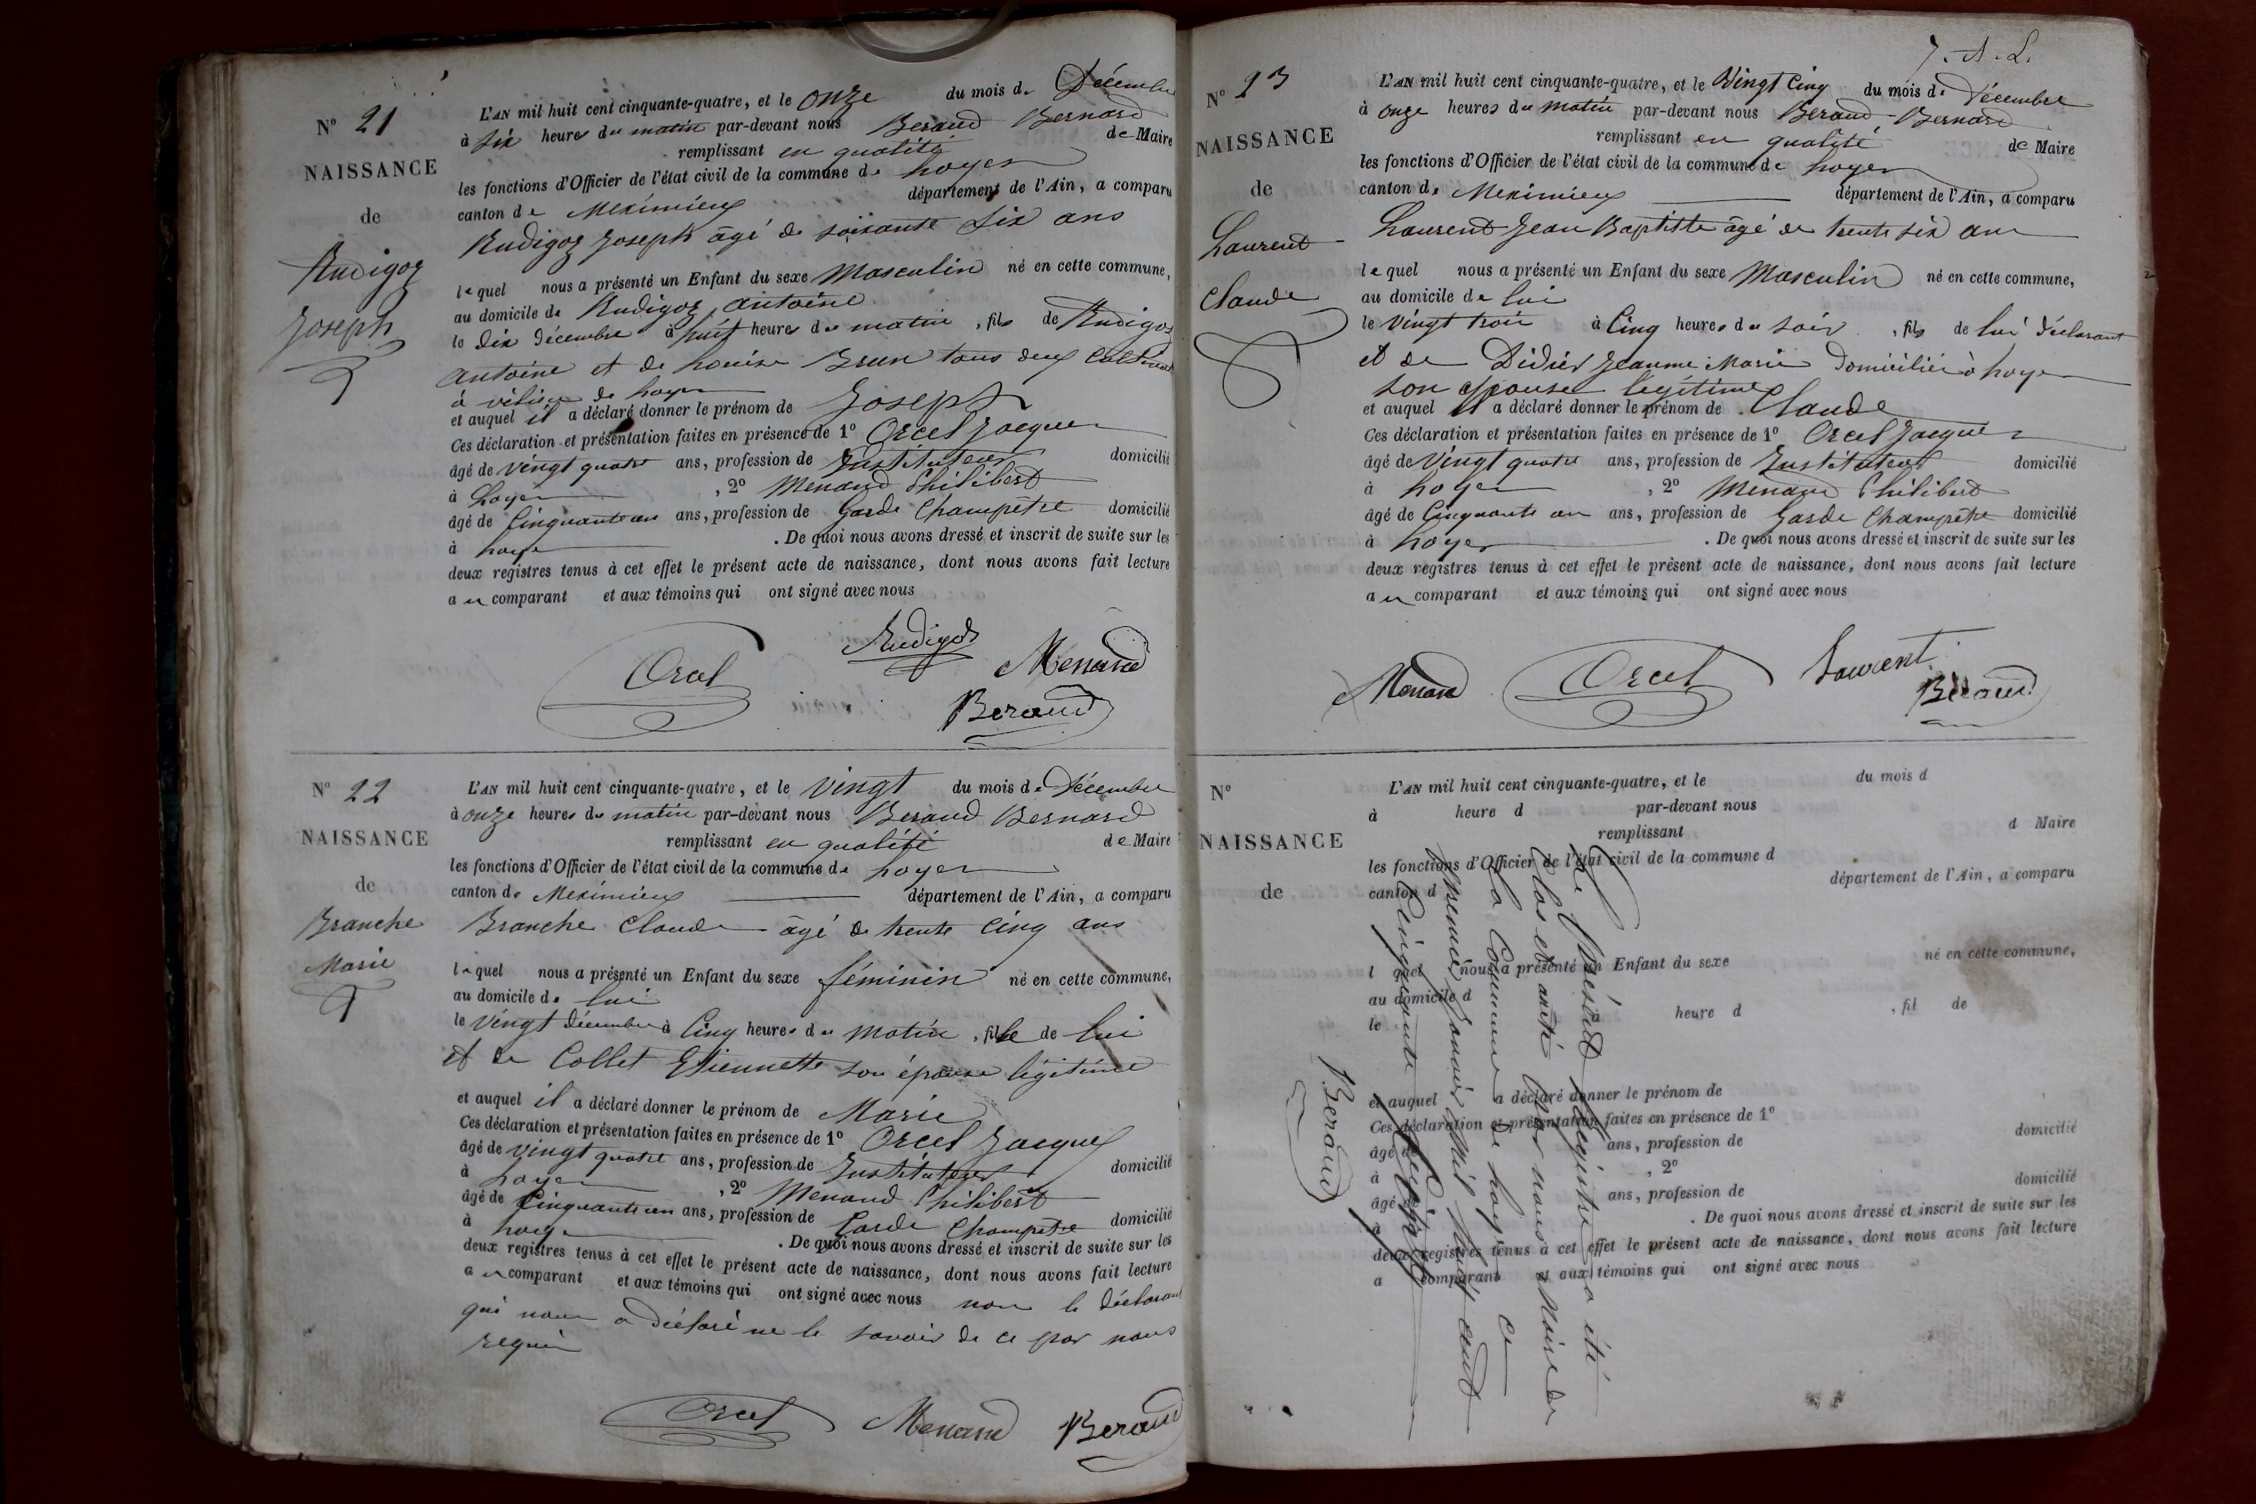 N° 21
NAISSANCE
de
Rudigoz
Joseph
L'AN mil huit cent cinquante-quatre, et le onze du mois de Décembre
à six heures du matin par-devant nous Beraud Bernard
remplissant en qualité de Maire
les fonctions d'Officier de l'état civil de la commune de Loyes
canton de Meximieux département de l'Ain, a comparu
Rudigoz Joseph âgé de soixante six ans
lequel nous a présenté un Enfant du sexe Masculin né en cette commune,
au domicile de Rudigoz antoine
le dix décembre à huit heures du matin, fils de Rudigoz
antoine et de Louise Brun tous deux Cultivat
à de Loyes
et auquel il a déclaré donner le prénom de Joseph
Ces déclaration et présentation faites en présence de 1° Orcel Jacques
âgé de vingt quatre ans, profession de Instituteur domicilié
à Loyes, 2° Menand Philibert
âgé de Cinquante un ans, profession de Garde Champêtre domicilié
à Loyes. De quoi nous avons dressé et inscrit de suite sur les
deux registres tenus à cet effet le présent acte de naissance, dont nous avons fait lecture
au comparant et aux témoins qui ont signé avec nous
Rudigoz
Orcel Menand
Beraud
N° 22
NAISSANCE
de
Branche
Marie
L'AN mil huit cent cinquante-quatre, et le vingt du mois de Décembre
à onze heures du matin par-devant nous Beraud Bernard
remplissant en qualité de Maire
les fonctions d'Officier de l'état civil de la commune de Loyes
canton de Meximieux département de l'Ain, a comparu
Branche Claude âgé de trente Cinq ans
lequel nous a présenté un Enfant du sexe féminin né en cette commune,
au domicile de lui
le vingt décembre à Cinq heures du matin, fille de lui
et de Collet Etiennette son épouse légitime
et auquel il a déclaré donner le prénom de Marie
Ces déclaration et présentation faites en présence de 1° Orcel Jacques
âgé de vingt quatre ans, profession de Instituteur domicilié
à Loyes, 2° Menand Philibert
âgé de Cinquante un ans, profession de Garde Champêtre domicilié
à Loyes. De quoi nous avons dressé et inscrit de suite sur les
deux registres tenus à cet effet le présent acte de naissance, dont nous avons fait lecture
au comparant et aux témoins qui ont signé avec nous non le déclarant
qui nous a déclaré ne le savoir de ce par nous
requis
Orcel Menand Beraud
N° 23
NAISSANCE
de
Laurent
Claude
L'AN mil huit cent cinquante-quatre, et le Vingt Cinq du mois de Décembre
à onze heures du matin par-devant nous Beraud Bernard
remplissant en qualité de Maire
les fonctions d'Officier de l'état civil de la commune de Loyes
canton de Meximieux département de l'Ain, a comparu
Laurent Jean Baptiste âgé de trente six ans
lequel nous a présenté un Enfant du sexe Masculin né en cette commune,
au domicile de lui
le vingt trois à Cinq heures du soir, fils de lui déclarant
et de Didier Jeanne Marie domiciliée à Loyes
son épouse légitime
et auquel il a déclaré donner le prénom de Claude
Ces déclaration et présentation faites en présence de 1° Orcel Jacques
âgé de Vingt quatre ans, profession de Instituteur domicilié
à Loyes, 2° Menand Philibert
âgé de Cinquante un ans, profession de Garde Champêtre domicilié
à Loyes. De quoi nous avons dressé et inscrit de suite sur les
deux registres tenus à cet effet le présent acte de naissance, dont nous avons fait lecture
au comparant et aux témoins qui ont signé avec nous
Menand Orcel Laurent
Beraud
N°
NAISSANCE
de
L'AN mil huit cent cinquante-quatre, et le du mois d
à heure d par-devant nous
remplissant d Maire
les fonctions d'Officier de l'état civil de la commune d
canton d département de l'Ain, a comparu
l quel nous a présenté un Enfant du sexe né en cette commune,
au domicile d
le à heure d , fil de
et auquel a déclaré donner le prénom de
Ces déclaration et présentation faites en présence de 1°
âgé de ans, profession de domicilié
à , 2°
âgé de ans, profession de domicilié
à . De quoi nous avons dressé et inscrit de suite sur les
deux registres tenus à cet effet le présent acte de naissance, dont nous avons fait lecture
a comparant et aux témoins qui ont signé avec nous
Le présent Registre a été
Clos et arrêté par nous Maire de
la Commune de Loyes ce
premier Janvier mil huit cent
Cinquante
Beraud